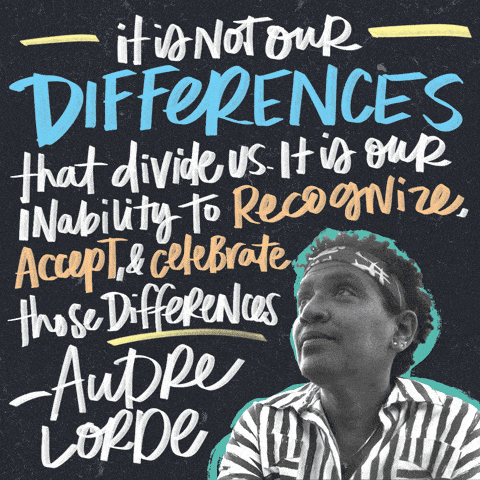 it is Not our
DIFFERENCES
that divide us. It is our
INability to Recognize,
Accept, & celebrate
those Differences
- AUDRE
LORDE